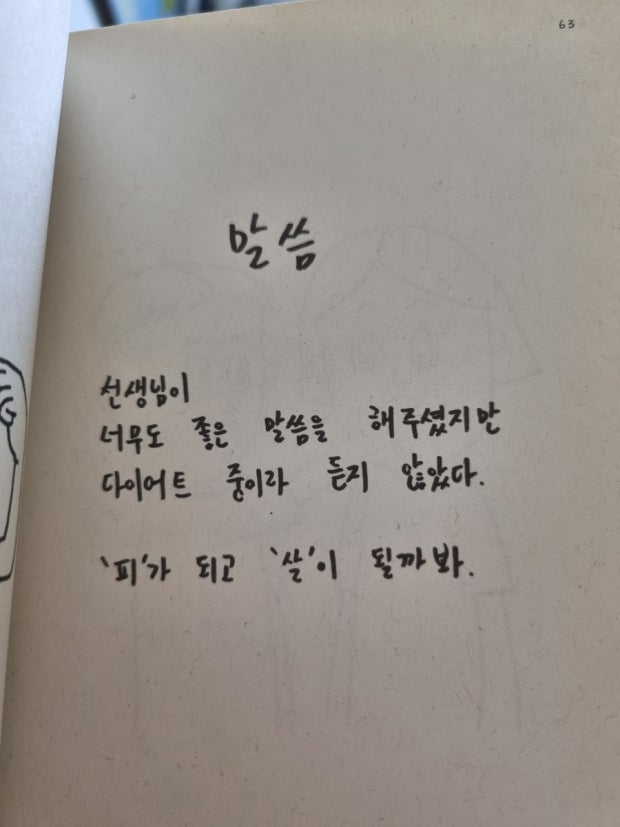 63
말씀
선생님이
너무도 좋은 말씀을 해주셨지만
다이어트 중이라 듣지 않았다.
'피'가 되고 '살'이 될까봐.